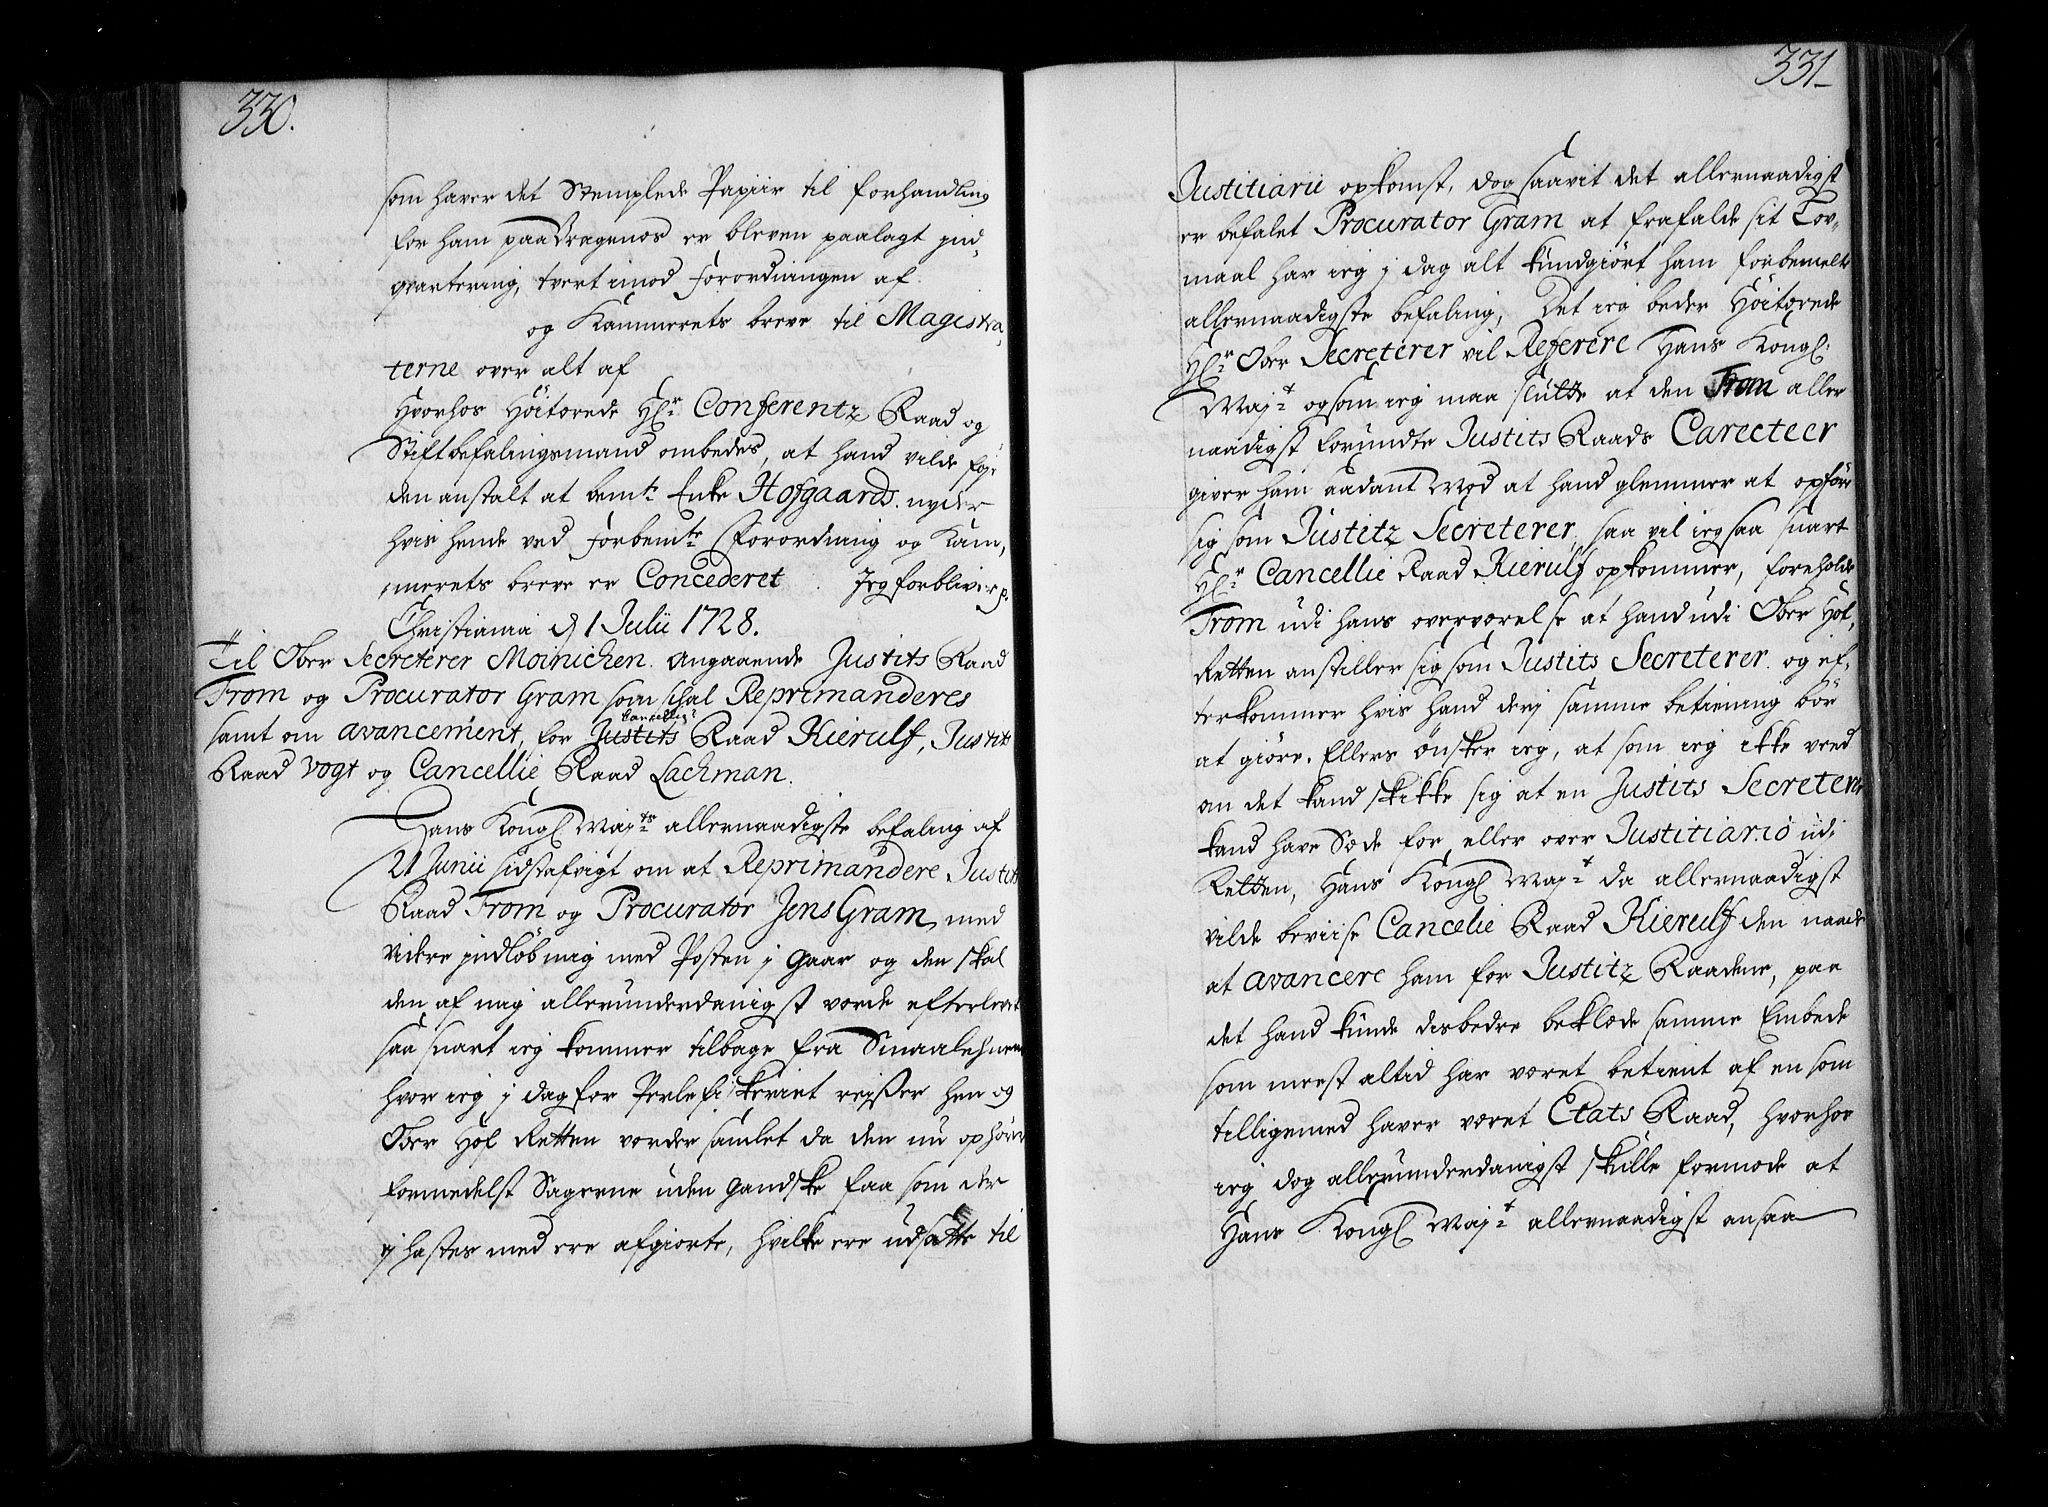 330.
som haver det Stemplede Papiir til forhandling
for ham paadragendes er bleven paalagt ind-
qvartering, tvert imod forordningen af
og Kammerets breve til Magistra-
terne over alt af
Hvorhos Höitærede Hr Conferentz Raad og
Stiftbefalingsmand ombedes, at hand vilde föye
den anstalt at bemte Enke Hofgaards nyder
hvis hende ved forbemte Forordning og Kam-
merets breve er Concederet. Jeg forbliver p.
Christiania d 1 Julii 1728.
Til Ober Secreterer Moinichen Angaaende Justits Raad
From og Procurator Gram som skal Reprimanderes
samt om avancement for Justits Cancellie Raad Kierulf, Justits
Raad Vogt og Cancellie Raad Lachman.
Hans Kongl Mayts allernaadigste befaling af
21 Junii sidstafvigt om at Reprimandere Justits
Raad From og Procurator Jens Gram, med
Videre indlöb mig med Posten i Gaar og den skal
den af mig allerunderdanigst vorde efterlevet
saa snart ieg kommer tilbage fra Smaalehnene
hvor ieg i dag for Perlefiskeriet reyser hen og
Ober Hof Retten vorder samlet da den nu ophörer
formedelst Sagerne uden Gandske faa som der
i hastes med ere afgiorte, hvilke ere udsatte til
331
Justitiarii opkomst, dog saavit det allernaadigst
er befalet Procurator Gram at frafalde sit Lov-
maal har ieg i dag alt kundgiört ham forbemelte
allernaadigste befaling, Det ieg beder Höitærede
Hr Ober Secreterer vil Referere Hans Kongl:
Mayt og som ieg maa slutte at den From aller
naadigst forundte Justits Raads Carecteer
giver ham saadant Mod at hand glemmer at opföre
sig som Justitz Secreterer, saa vil ieg saa snart
Hr Cancellie Raad Kierulf opkommer, foreholde
From udi hans overværelse at hand udi Ober Hof-
Retten anstiller sig som Justits Secreterer og ef-
terkommer hvis hand derj samme betiening bör
at giöre. Ellers önsker ieg, at som ieg ikke veed
om det kand skikke sig at en Justits Secreterer
kand have Sæde for eller over Justitiario udi
Retten, Hans Kongl Mayt da allernaadigst
vilde beviise Cancelie Raad Kierulf den naade
at avancere ham for Justitz Raadene, paa
det hand kunde disbedre beklæde samme Embede
som meest altid har været betient af en som
tilligemed haver været Etats Raad, hvorhos
ieg dog allerunderdanigst skulle formode at
Hans Kongl Mayt allernaadigst ansaa